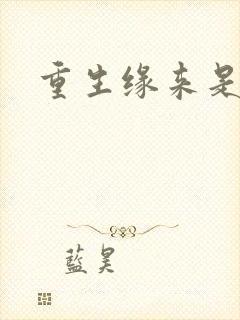 重生缘来是
藍昊